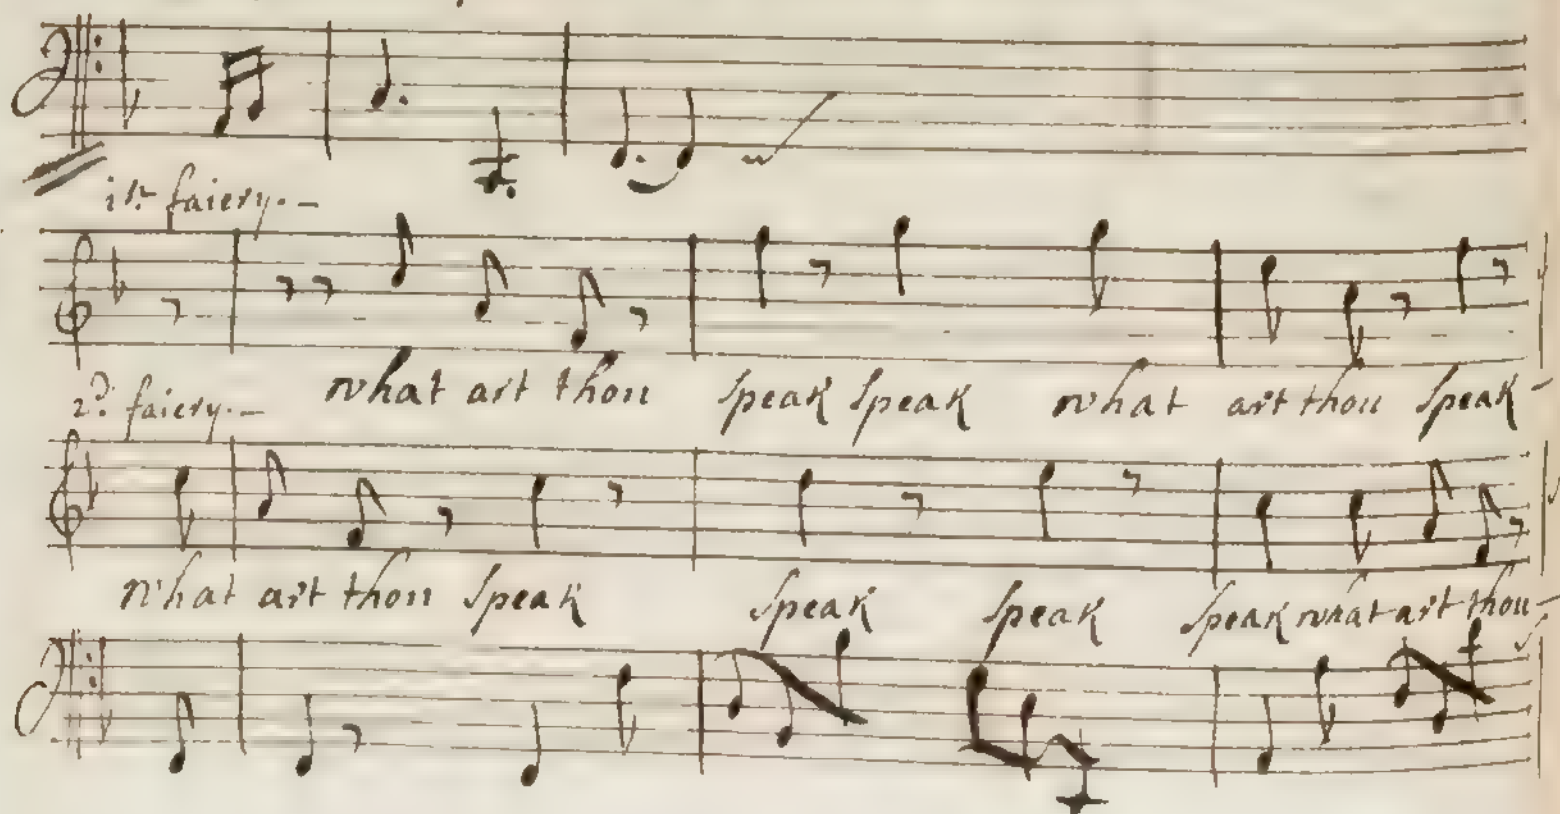 1st faiery.-
what art thou speak speak what art thou speak-
2d. faiery.-
what art thou speak speak speak speak what art thou-